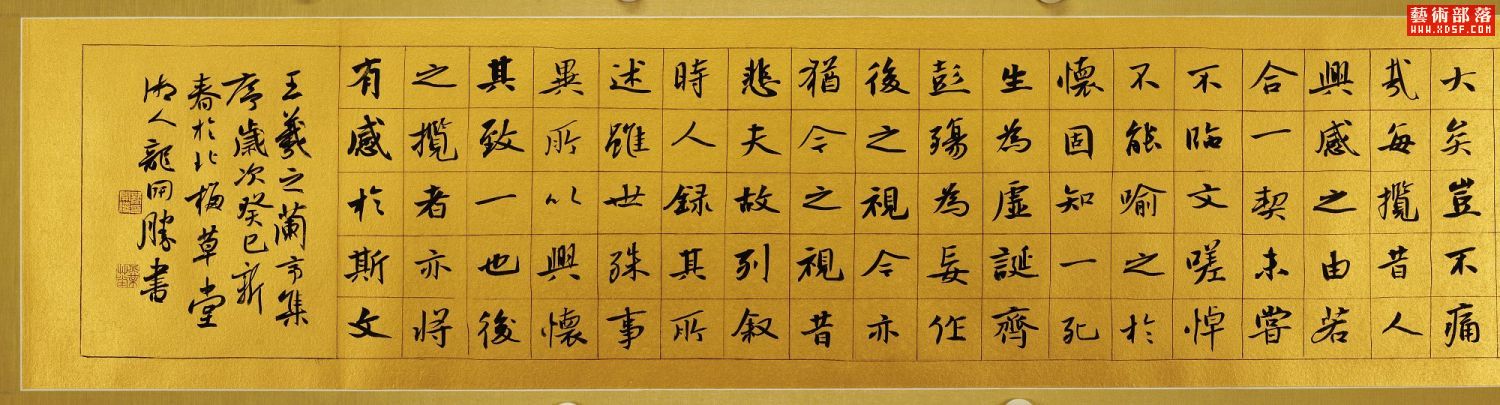 藝術部落
www.XDSF.com
大矣豈不痛
哉每攬昔人
興感之由若
合一契未嘗
不臨文嗟悼
不能喻之於
懷固知一死
生為虛誕齊
彭殤為妄作
後之視今亦
猶今之視昔
悲夫故列叙
時人録其所
述雖世殊事
異所以興懷
其致一也後
之攬者亦将
有感於斯文
王羲之蘭亭集
序歲次癸巳新
春於北梅草堂
湖人龍開勝書